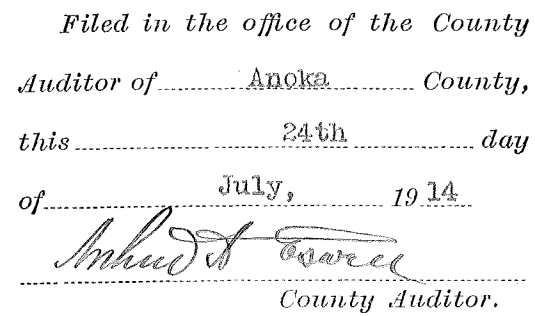 Filed in the office of the County
Auditor of Anoka County,
this 24th day
of July, 1914
County Auditor.